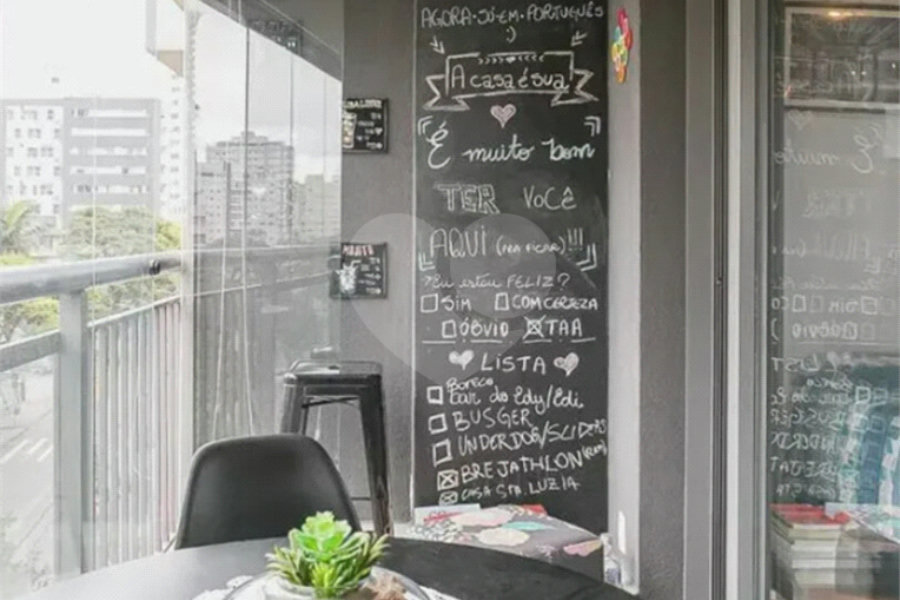 AGORA · SÓ · EM · PORTUGUÊS
:)
A casa é sua
É muito bom
TER VOCÊ
AQUI (pra ficar)!!!
Eu estou FELIZ?
SIM COM CERTEZA
ÓBVIO TAA
LISTA
BOTECO
bar do Edy/Edi
BUSGER
UNDERDOG/SLIDERS
BREJATHLON
CASA STA. LUZIA